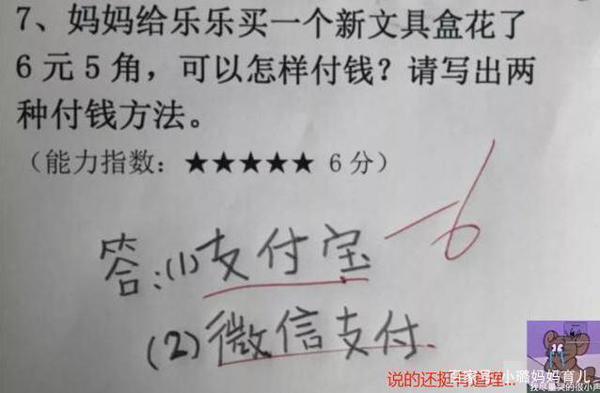 7、妈妈给乐乐买一个新文具盒花了
6元5角，可以怎样付钱？请写出两
种付钱方法。
（能力指数：★★★★★ 6分）
答:(1)支付宝
-6
(2)微信支付.
百家号 小璐妈妈育儿
说的还挺有道理...
我尽量哭的很小声